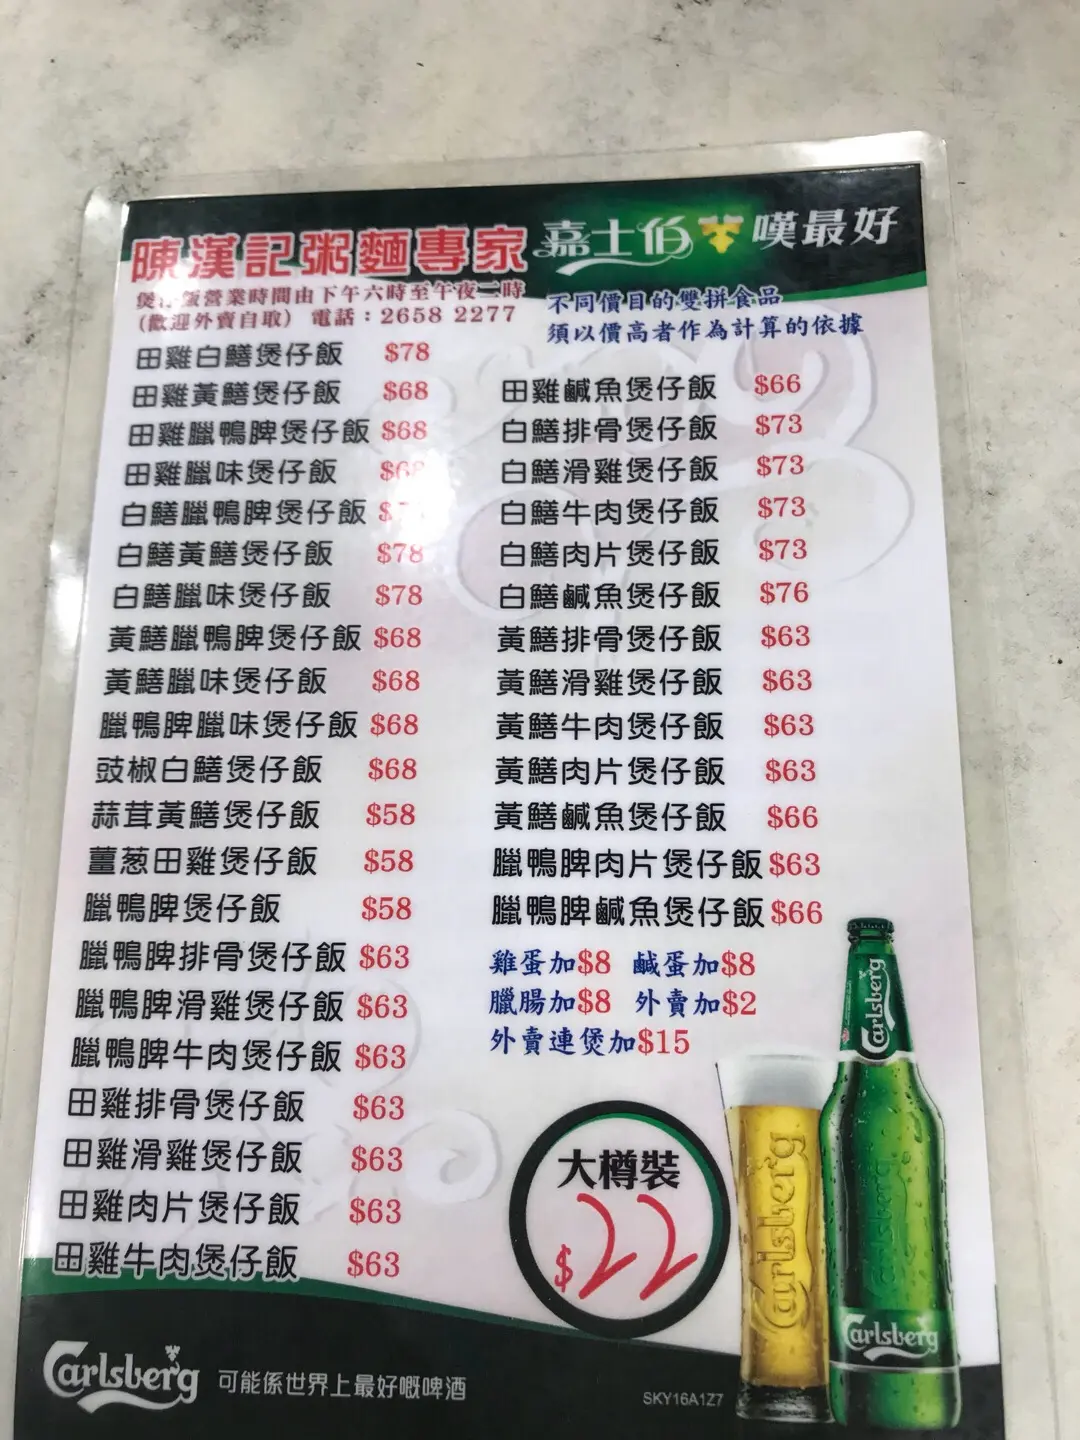 陳漢記粥麵專家
嘉士伯 嘆最好
煲仔飯營業時間由下午六時至午夜二時
(歡迎外賣自取) 電話：2658 2277
不同價目的雙拼食品
須以價高者作為計算的依據
田雞白鱔煲仔飯 $78
田雞黃鱔煲仔飯 $68
田雞臘鴨脾煲仔飯 $68
田雞臘味煲仔飯 $68
白鱔臘鴨脾煲仔飯
白鱔黃鱔煲仔飯 $78
白鱔臘味煲仔飯 $78
黃鱔臘鴨脾煲仔飯 $68
黃鱔臘味煲仔飯 $68
臘鴨脾臘味煲仔飯 $68
豉椒白鱔煲仔飯 $68
蒜茸黃鱔煲仔飯 $58
薑葱田雞煲仔飯 $58
臘鴨脾煲仔飯 $58
臘鴨脾排骨煲仔飯 $63
臘鴨脾滑雞煲仔飯 $63
臘鴨脾牛肉煲仔飯 $63
田雞排骨煲仔飯 $63
田雞滑雞煲仔飯 $63
田雞肉片煲仔飯 $63
田雞牛肉煲仔飯 $63
田雞鹹魚煲仔飯 $66
白鱔排骨煲仔飯 $73
白鱔滑雞煲仔飯 $73
白鱔牛肉煲仔飯 $73
白鱔肉片煲仔飯 $73
白鱔鹹魚煲仔飯 $76
黃鱔排骨煲仔飯 $63
黃鱔滑雞煲仔飯 $63
黃鱔牛肉煲仔飯 $63
黃鱔肉片煲仔飯 $63
黃鱔鹹魚煲仔飯 $66
臘鴨脾肉片煲仔飯 $63
臘鴨脾鹹魚煲仔飯 $66
雞蛋加$8 鹹蛋加$8
臘腸加$8 外賣加$2
外賣連煲加$15
大樽裝
$22
Carlsberg
Carlsberg
Carlsberg
Carlsberg
Carlsberg 可能係世界上最好嘅啤酒
SKY16A1Z7